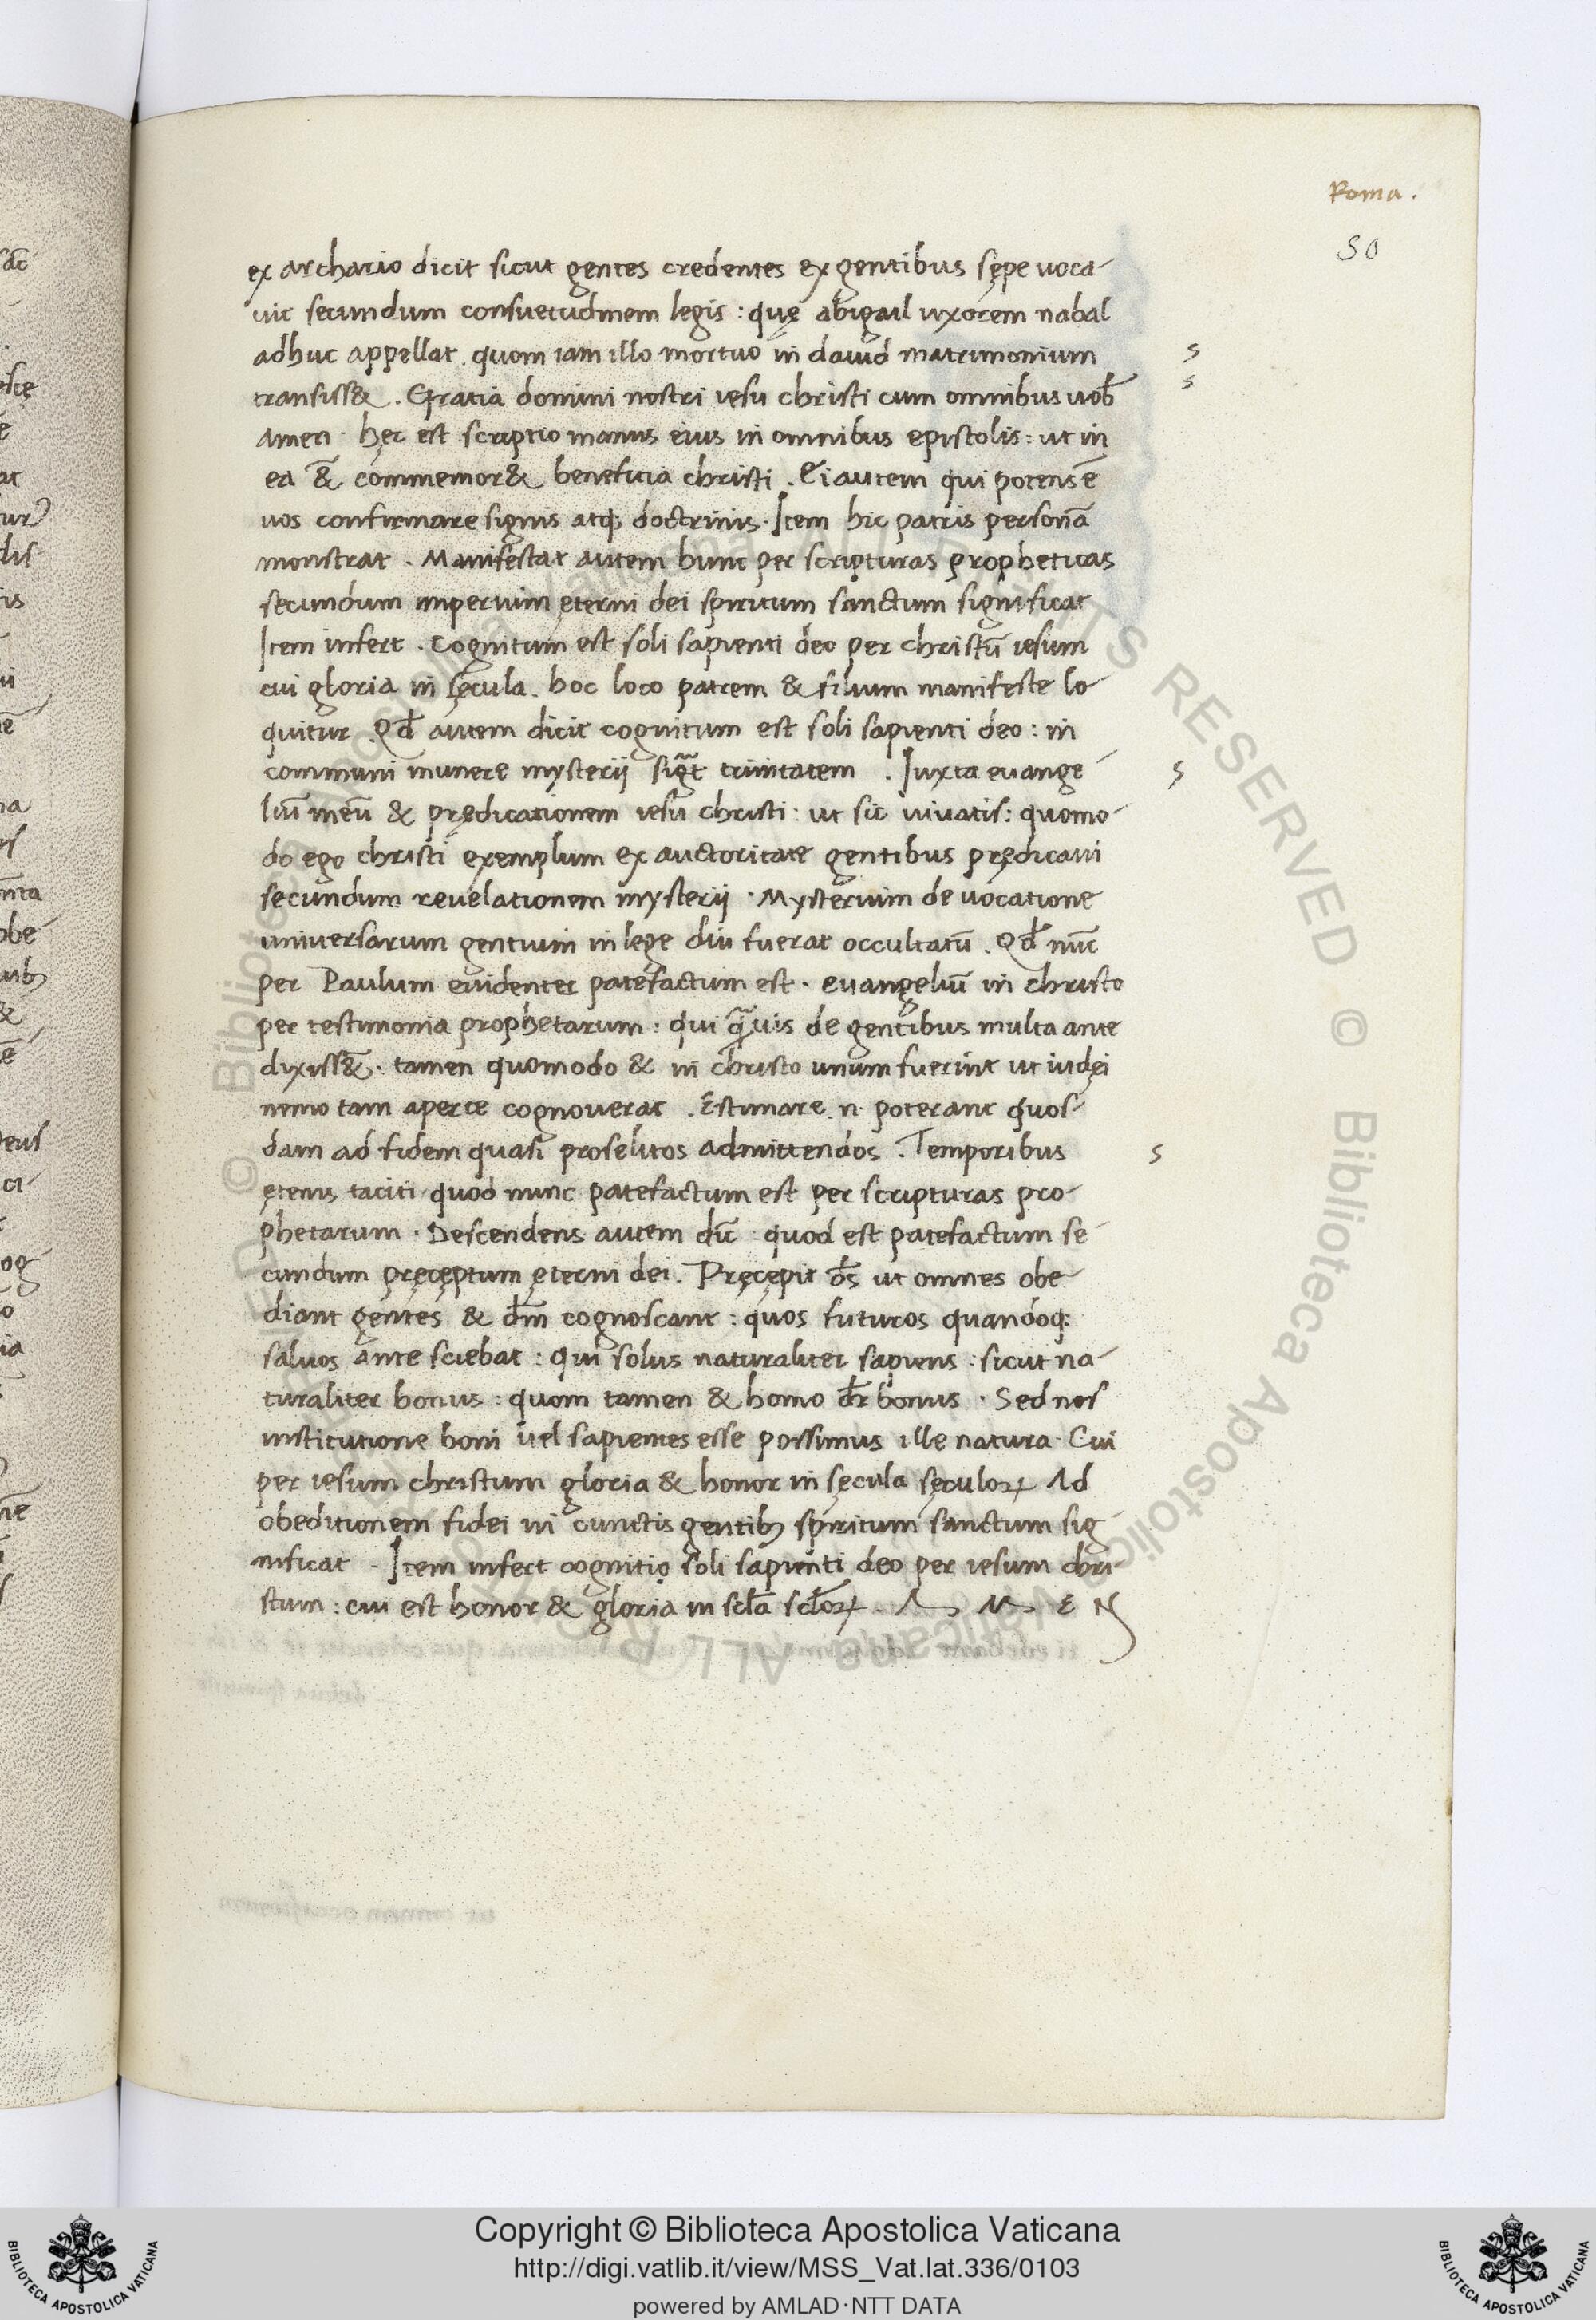 Roma.
50
ex archario dicit sicut gentes credentes ex gentibus sępe uoca-
uit secundum consuetudinem legis : quę abigail uxorem nabal
adhuc appellat. quom iam illo mortuo in dauid matrimonium s
transiss&. Gratia domini nostri iesu christi cum omnibus uob̄ s
amen. hęc est scriptio manus eius in omnibus epistolis: ut in
ea & commemor& beneficia christi. Ei autem qui potens ē
uos confirmare signis atq; doctrinis. Item hic patris personā
monstrat. Manifestat autem hunc per scripturas propheticas
secundum imperium ęterni dei spiritum sanctum significat
Item infert. Cognitum est soli sapienti deo per christū iesum
cui gloria in sęcula. hoc loco patrem & filium manifeste lo-
quitur. Qd̄ autem dicit cognitum est soli sapienti deo: in
communi munere mysterij sigt̄ trinitatem. Iuxta euange- s
liū meū & prędicationem iesu christi: ut sic uiuatis: quomo-
do ego christi exemplum ex auctoritate gentibus prędicaui
secundum reuelationem mysterij. Mysterium de uocatione
uniuersarum gentium in lege diu fuerat occultatū. Qd̄ nūc
per Paulum euidenter patefactum est. euangęliū in christo
per testimonia prophetarum: qui q̄uis de gentibus multa ante
dixiss&. tamen quomodo & in christo unum fuerint ut iudęi
nemo tam aperte cognouerat. Estimare .n. poterant quos-
dam ad fidem quasi proselitos admittendos. Temporibus s
ęternis taciti quod nunc patefactum est per scripturas pro-
phetarum. Descendens autem dic̄: quod est patefactum se-
cundum pręcęptum ęterni dei. Pręcępit ds̄ ut omnes obe-
diant gentes & dm̄ cognoscant: quos futuros quandoq;
saluos ante sciebat: qui solus naturaliter sapiens: sicut na-
turaliter bonus: quom tamen & homo dr̄ bonus. Sed nos
institutione boni uel sapientes esse possimus ille natura. Cui
per iesum christum gloria & honor in sęcula sęculoꝝ Ad
obeditionem fidei in cunctis gentib; spiritum sanctum sig-
nificat. Item infert cognitio soli sapienti deo per iesum chri-
stum: cui est honor & gloria in scl̄a scl̄oꝝ. A M E N
© Biblioteca Apostolica Vaticana ALL RIGHTS RESERVED
Copyright © Biblioteca Apostolica Vaticana
http://digi.vatlib.it/view/MSS_Vat.lat.336/0103
powered by AMLAD·NTT DATA
BIBLIOTECA APOSTOLICA VATICANA
BIBLIOTECA APOSTOLICA VATICANA